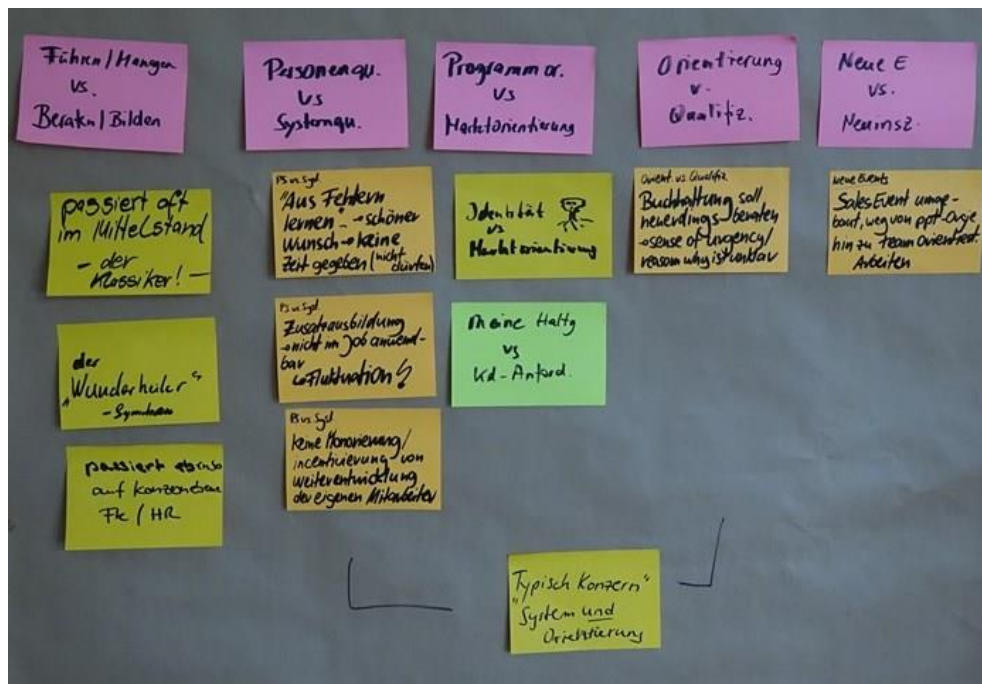 Führen/Managen
vs.
Beraten/Bilden
Personenqu.
vs
Systemqu.
Programmor.
vs
Marktorientierung
Orientierung
v.
Qualifiz.
Neue E
vs.
Neuinsz.
passiert oft
im Mittelstand
- der
Klassiker! -
der
"Wunderheiler"
passiert ebenso
auf Konzernebene
FK / HR
PS vs Syst
"Aus Fehlern
lernen" → schöner
Wunsch → keine
Zeit gegeben (nicht
dürfen)
PS vs Syst
Zusatzausbildung
→ nicht im Job anwend-
bar
↳ Fluktuation
PS vs Syst
keine Honorierung/
incentivierung von
weiterentwicklung
der eigenen Mitarbeiter
Identität
vs
Marktorientierung
meine Haltg
vs
Kd-Anford.
Orient. vs Qualifiz
Buchhaltung soll
neuerdings beraten
→ sense of urgency/
reason why ist unklar
Neue Events
Sales Event umge-
baut, weg von ppt-Orgie
hin zu Team orientiert.
Arbeiten
"Typisch Konzern"
System und
Orientierung